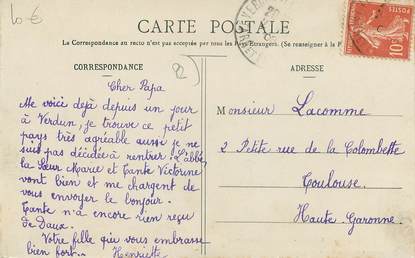 10-€
2
CARTE POSTALE
La Correspondance au recto n'est pas acceptée par tous les Pays Etrangers. (Se renseigner à la
CORRESPONDANCE
ADRESSE
Cher Papa
Me voici dejà depuis un jour
à Verdun, je trouve ce petit
pays très agréable aussi je ne
suis pas décidée à rentrer. L'abbé,
la Sœur Marie et Tante Victorine
vont bien et me chargent de
vous envoyer le bonjour.
Tante n'a encore rien reçu
de Daux.
Votre fille qui vous embrasse
bien fort. Henriette
Monsieur Lacomme
2 Petite rue de la Colombette
Toulouse.
Haute Garonne.
POSTES
10